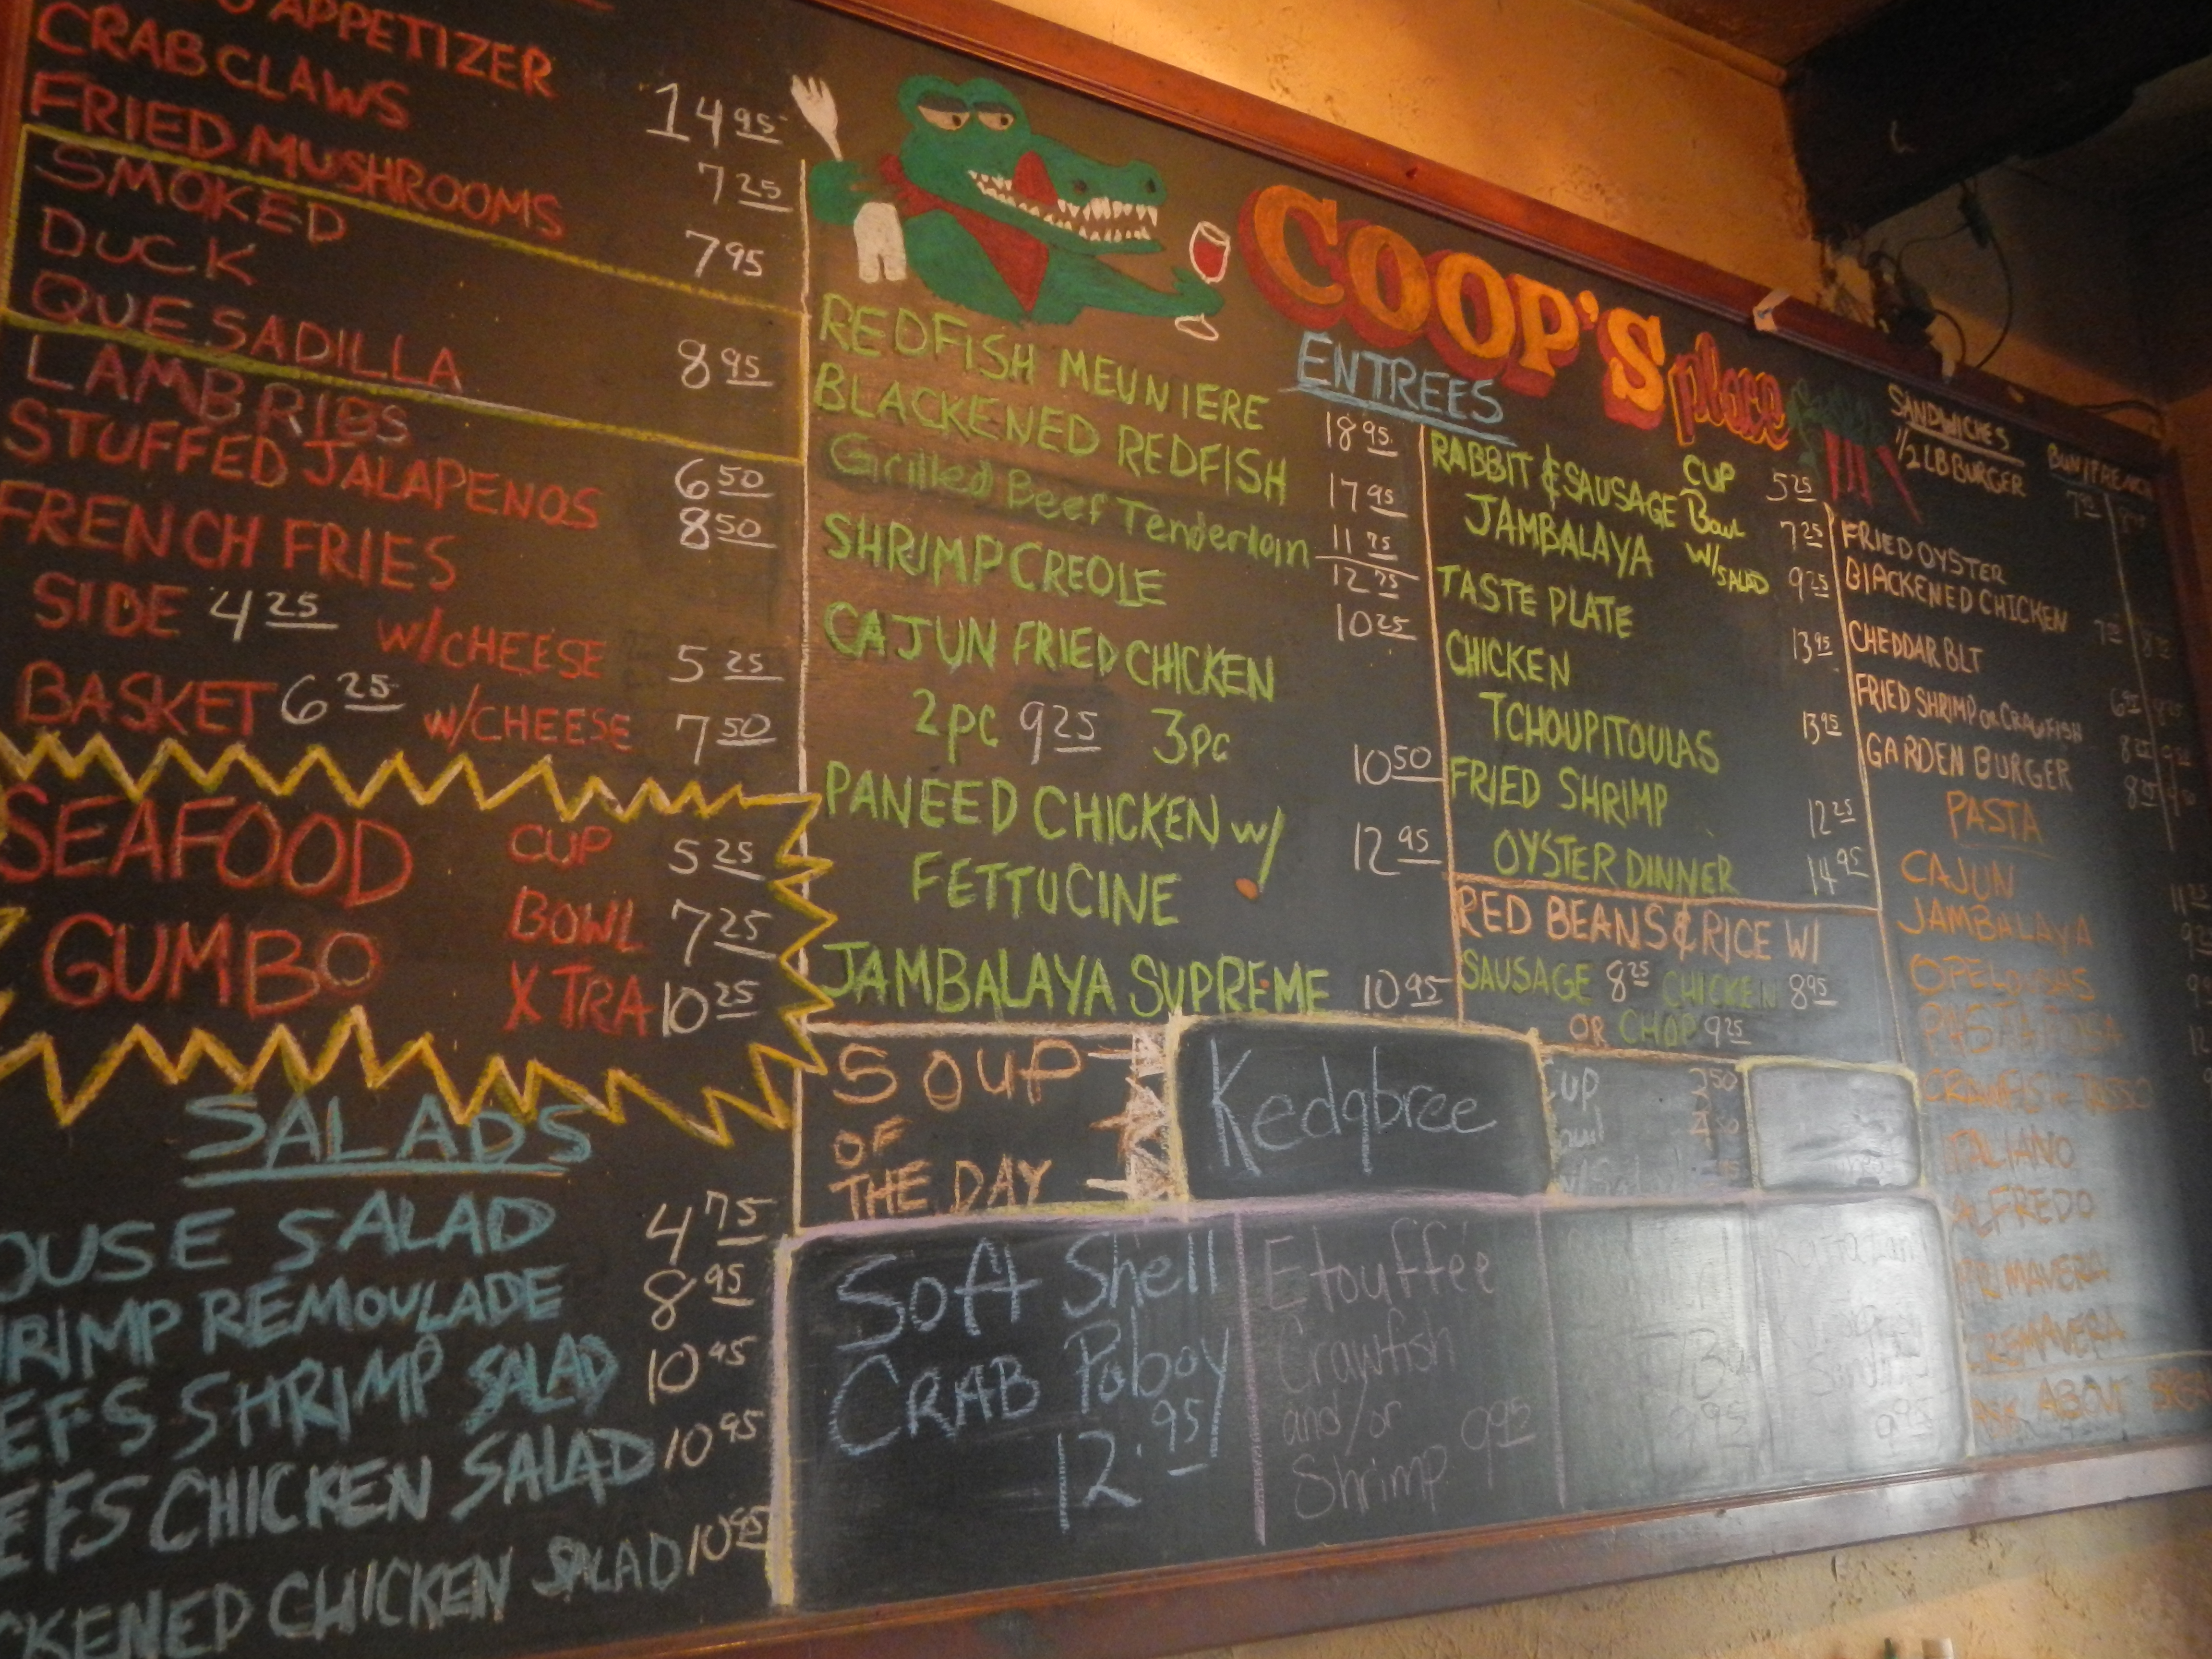 APPETIZER
CRAB CLAWS 14 95
FRIED MUSHROOMS 7 25
SMOKED
DUCK 7 95
QUESADILLA 8 95
LAMB RIBS
STUFFED JALAPENOS 6 50
FRENCH FRIES 8 50
SIDE 4 25 W/CHEESE 5 25
BASKET 6 25 W/CHEESE 7 50
SEAFOOD CUP 5 25
GUMBO BOWL 7 25
XTRA 10 25
SALADS
SALAD 4 75
REMOULADE 8 95
SHRIMP SALAD 10 95
CHICKEN SALAD 10 95
CHICKEN SALAD 10 95
COOP'S place
ENTREES
REDFISH MEUNIERE 18 95
BLACKENED REDFISH 17 95
Grilled Beef Tenderloin 11 75
SHRIMP CREOLE 12 75
CAJUN FRIED CHICKEN 10 25
2pc 9 25 3pc 10 50
PANEED CHICKEN W/
FETTUCINE 12 95
JAMBALAYA SUPREME 10 95
RABBIT & SAUSAGE CUP 5 25
JAMBALAYA Bowl 7 25
W/SALAD 9 25
TASTE PLATE 13 95
CHICKEN
TCHOUPITOULAS 13 95
FRIED SHRIMP 12 25
OYSTER DINNER 14 95
RED BEANS & RICE W/
SAUSAGE 8 25 CHICKEN 8 95
OR CHOP 9 25
SOUP
OF
THE DAY
Kedgbree
CUP
Soft Shell
CRAB Poboy
12.95
Etouffée
Crawfish
and/or
Shrimp 9 95
9 95
9 95
SANDWICHES
1/2 LB BURGER
FRIED OYSTER
BLACKENED CHICKEN
CHEDDAR BLT
FRIED SHRIMP OR CRAWFISH
GARDEN BURGER
PASTA
CAJUN
JAMBALAYA
OPELOUSAS
PASTA
TASSO
ITALIANO
ALFREDO
PRIMAVERA
ASK ABOUT